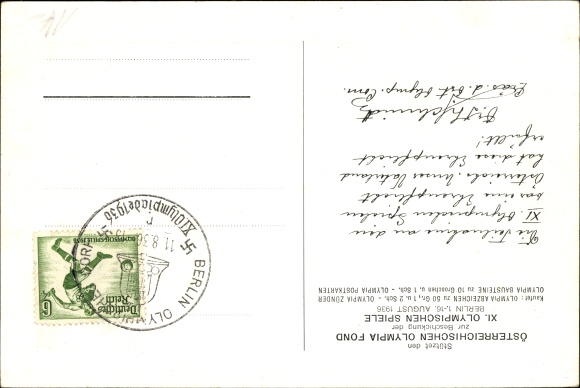 Stützet den
ÖSTERREICHISCHEN OLYMPIA FOND
zur Beschickung der
XI. OLYMPISCHEN SPIELE
BERLIN 1.-16. AUGUST 1936
Kaufet: OLYMPIA ABZEICHEN zu 50 Gr., 1 u. 2 Sch. - OLYMPIA ZÜNDER
OLYMPIA BAUSTEINE zu 10 Groschen u. 1 Sch. - OLYMPIA POSTKARTEN
Die Teilnahme an den
XI Olympischen Spielen
war eine Ehrenpflicht
Österreichs. Unser Vaterland
hat diese Ehrenpflicht
erfüllt!
Präs. d. Öst. Olymp. Com.
Deutsches
Reich
6
OLYMPISCHE SPIELE 1936
BERLIN OLYMPIA
11.8.36
r
XI.Olympiade 1936